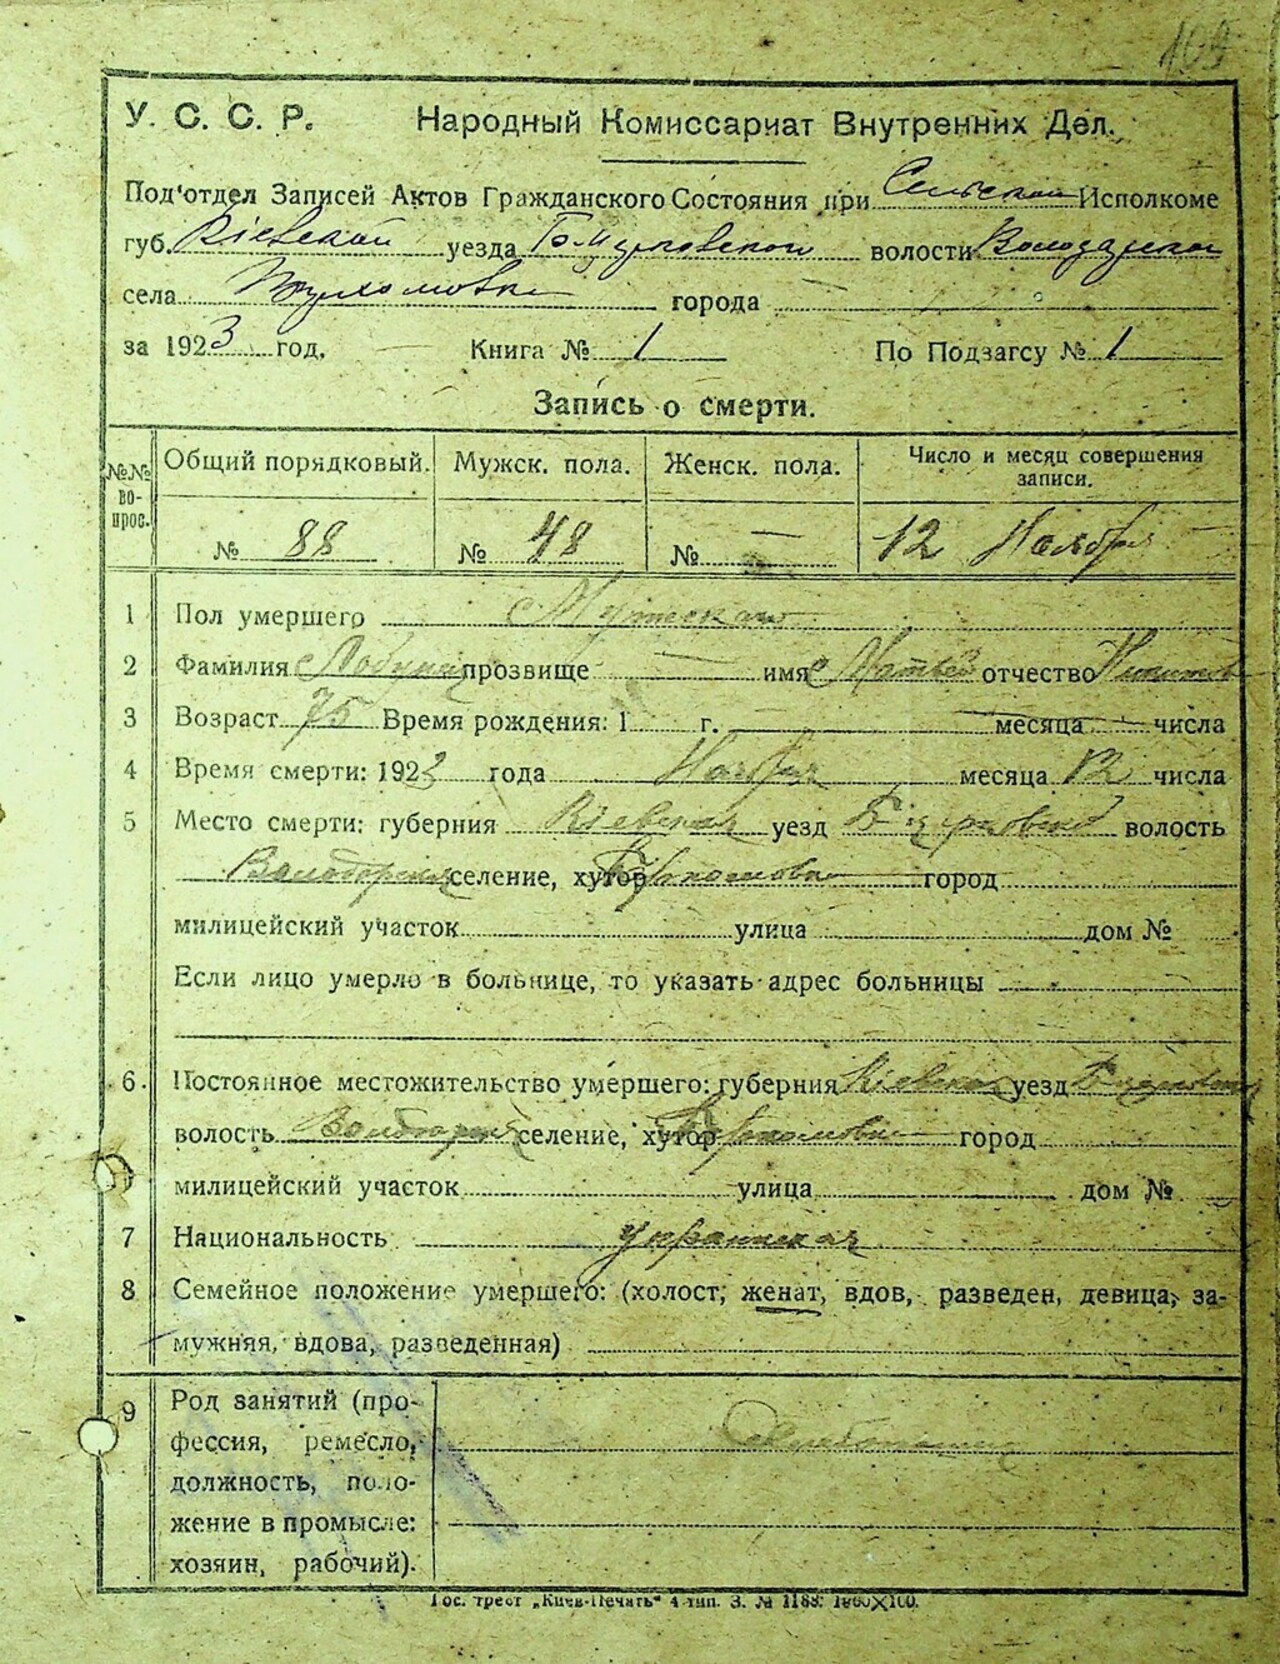 109
У. С. С. Р. Народный Комиссариат Внутренних Дел.
Под'отдел Записей Актов Гражданского Состояния при Сельском Исполкоме
губ. Кіевской уезда Б-Церковской волости Володарской
села города
за 1923 год. Книга № 1 По Подзагсу № 1
Запись о смерти.
№№ вопрос. Общий порядковый. Мужск. пола. Женск. пола. Число и месяц совершения записи.
№ 88 № 48 № — 12 Ноября
1 Пол умершего Мужескаго
2 Фамилия прозвище — имя Матвей отчество
3 Возраст 75 Время рождения: 1 г. месяца числа
4 Время смерти: 1923 года Ноября месяца 12 числа
5 Место смерти: губерния Кіевская уезд Б-Церковской волость
Володарская селение, хутор город
милицейский участок улица дом №
Если лицо умерло в больнице, то указать адрес больницы
6. Постоянное местожительство умершего: губерния Кіевская уезд Б-Церковской
волость Володарская селение, хутор город
милицейский участок улица дом №
7 Национальность украинская
8 Семейное положение умершего: (холост, женат, вдов, разведен, девица, за-
мужняя, вдова, разведенная)
9 Род занятий (про-
фессия, ремесло,
должность, поло-
жение в промысле:
хозяин, рабочий).
Гос. трест „Киев-Печать" 4 тип. З. № 1188. 1000×100.